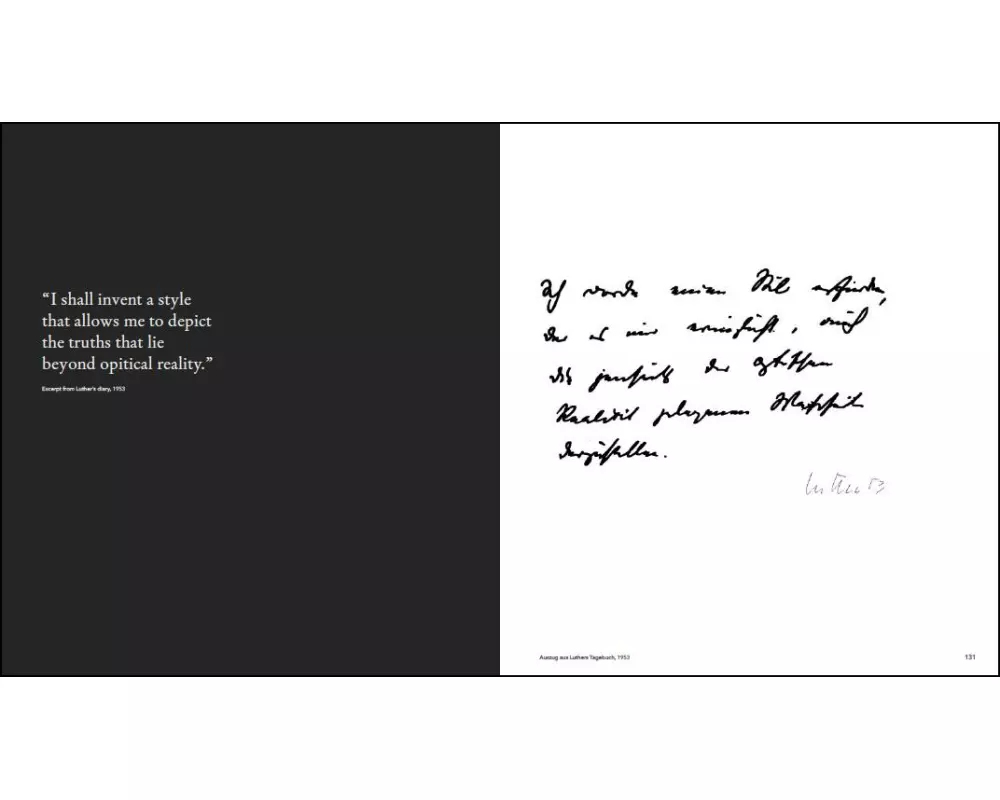 “I shall invent a style
that allows me to depict
the truths that lie
beyond opitical reality.”
Excerpt from Luther's diary, 1953
Ich werde meinen Stil erfinden,
der es mir ermöglicht, auch
die jenseits der optischen
Realität gelegenen Wahrheiten
darzustellen.
Luther 53
Auszug aus Luthers Tagebuch, 1953
131